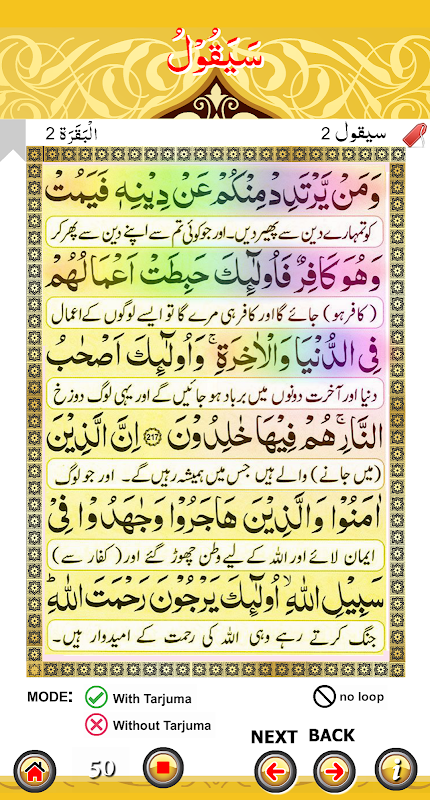 سَيَقُوْلُ
سيقول 2
الْبَقَرَة 2
وَمَنْ يَّرْتَدِدْ مِنْكُمْ عَنْ دِيْنِهٖ فَيَمُتْ
کو تمہارے دین سے پھیر دیں۔ اور جو کوئی تم سے اپنے دین سے پھر کر
وَهُوَ كَافِرٌ فَاُولٰٓئِكَ حَبِطَتْ اَعْمَالُهُمْ
(کافر ہو) جائے گا اور کافر ہی مرے گا تو ایسے لوگوں کے اعمال
فِى الدُّنْيَا وَالْاٰخِرَةِ ۚ وَاُولٰٓئِكَ اَصْحٰبُ
دنیا اور آخرت دونوں میں برباد ہو جائیں گے اور یہی لوگ دوزخ
النَّارِ ۚ هُمْ فِيْهَا خٰلِدُوْنَ 217 اِنَّ الَّذِيْنَ
(میں جانے) والے ہیں جس میں ہمیشہ رہیں گے۔ اور جو لوگ
اٰمَنُوْا وَالَّذِيْنَ هَاجَرُوْا وَجٰهَدُوْا فِىْ
ایمان لائے اور اللہ کے لیے وطن چھوڑ گئے اور (کفار سے)
سَبِيْلِ اللّٰهِ ۙ اُولٰٓئِكَ يَرْجُوْنَ رَحْمَتَ اللّٰهِ ؕ
جنگ کرتے رہے وہی اللہ کی رحمت کے امیدوار ہیں۔
MODE: With Tarjuma
no loop
Without Tarjuma
NEXT BACK
50
i